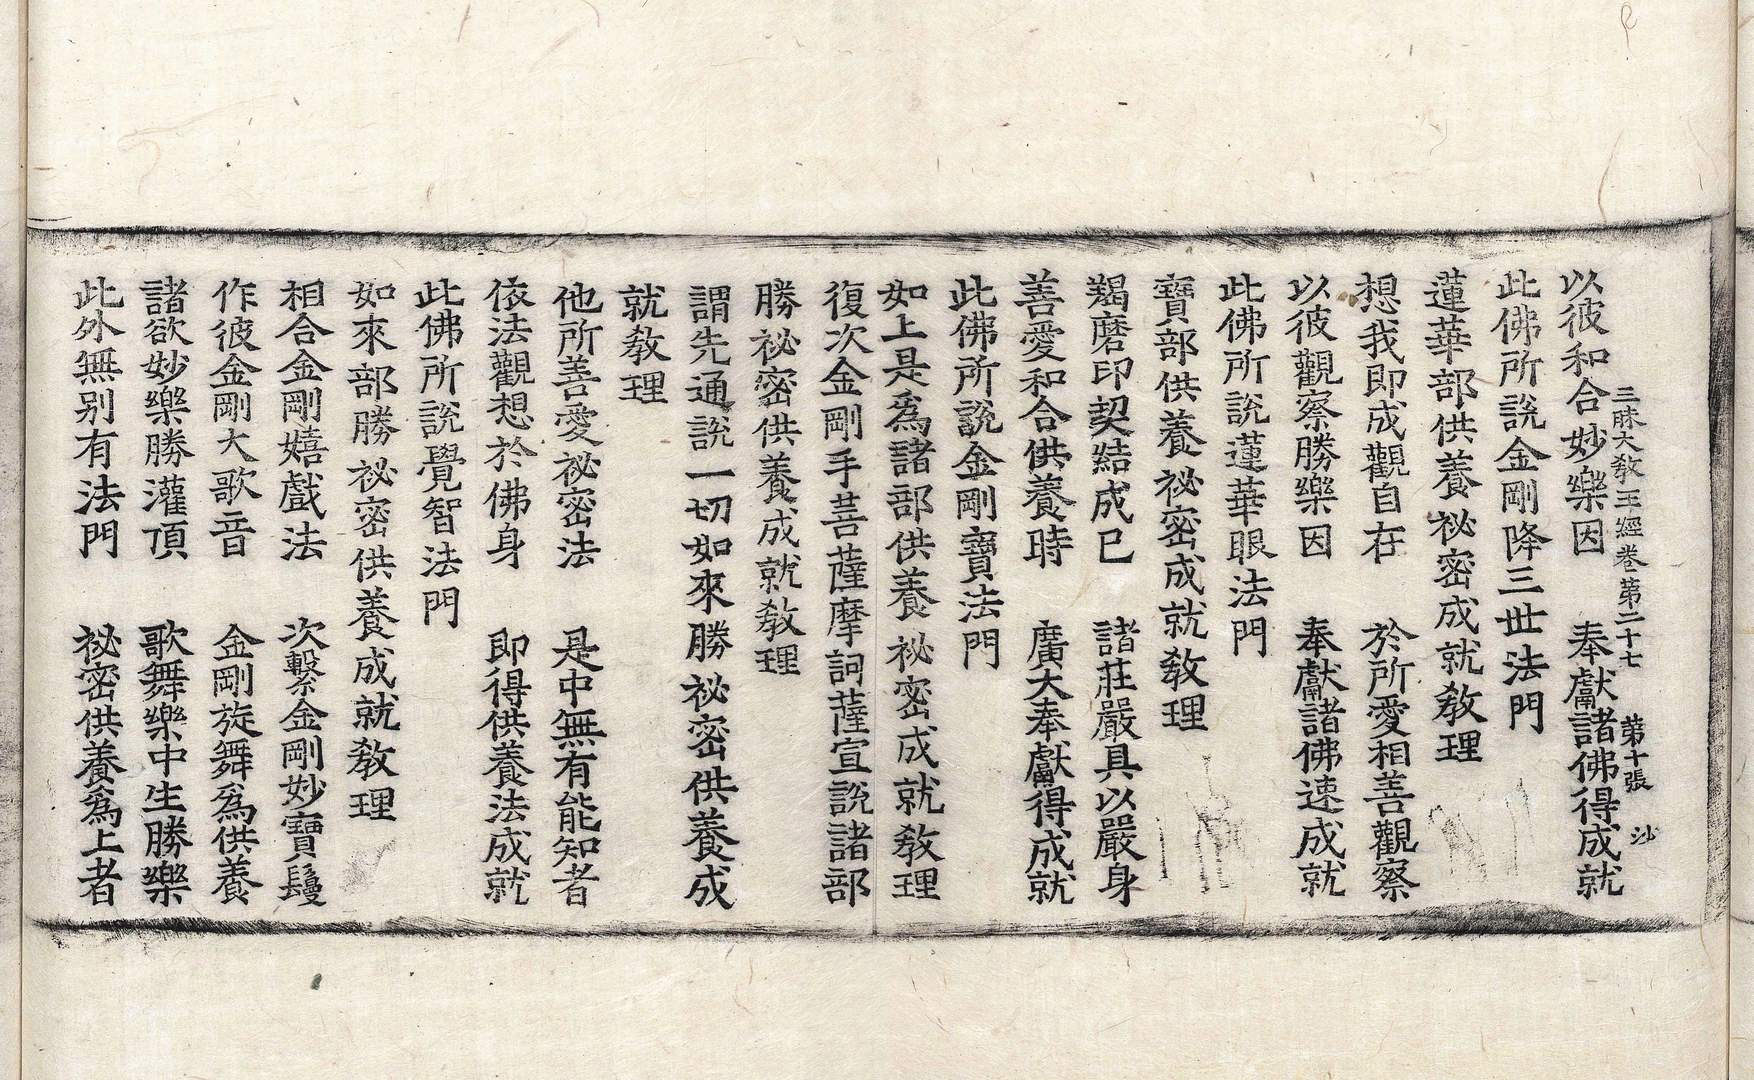 三昧大教王經卷第二十七　第十張　沙
以彼和合妙樂因　奉獻諸佛得成就
此佛所說金剛降三世法門
蓮華部供養祕密成就教理
想我即成觀自在　於所愛相善觀察
以彼觀察勝樂因　奉獻諸佛速成就
此佛所說蓮華眼法門
寶部供養祕密成就教理
羯磨印契結成已　諸莊嚴具以嚴身
善愛和合供養時　廣大奉獻得成就
此佛所說金剛寶法門
如上是爲諸部供養祕密成就教理
復次金剛手菩薩摩訶薩宣說諸部
勝祕密供養成就教理
謂先通說一切如來勝祕密供養成
就教理
他所善愛祕密法　是中無有能知者
依法觀想於佛身　即得供養法成就
此佛所說覺智法門
如來部勝祕密供養成就教理
相合金剛嬉戲法　次繫金剛妙寶鬘
作彼金剛大歌音　金剛旋舞爲供養
諸欲妙樂勝灌頂　歌舞樂中生勝樂
此外無別有法門　祕密供養爲上者